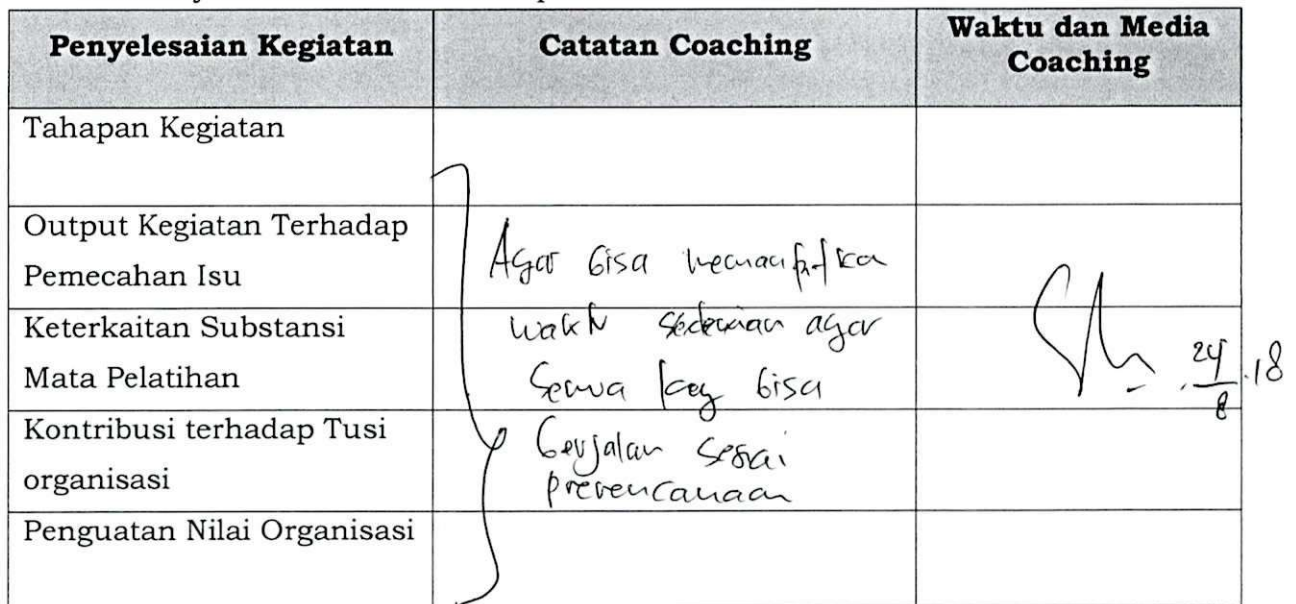 Penyelesaian Kegiatan
Catatan Coaching
Waktu dan Media
Coaching
Tahapan Kegiatan
Output Kegiatan Terhadap
Pemecahan Isu
Agar bisa
Keterkaitan Substansi
Mata Pelatihan
agar
Semua keg bisa
24/8.18
Kontribusi terhadap Tusi
organisasi
berjalan sesai
Penguatan Nilai Organisasi